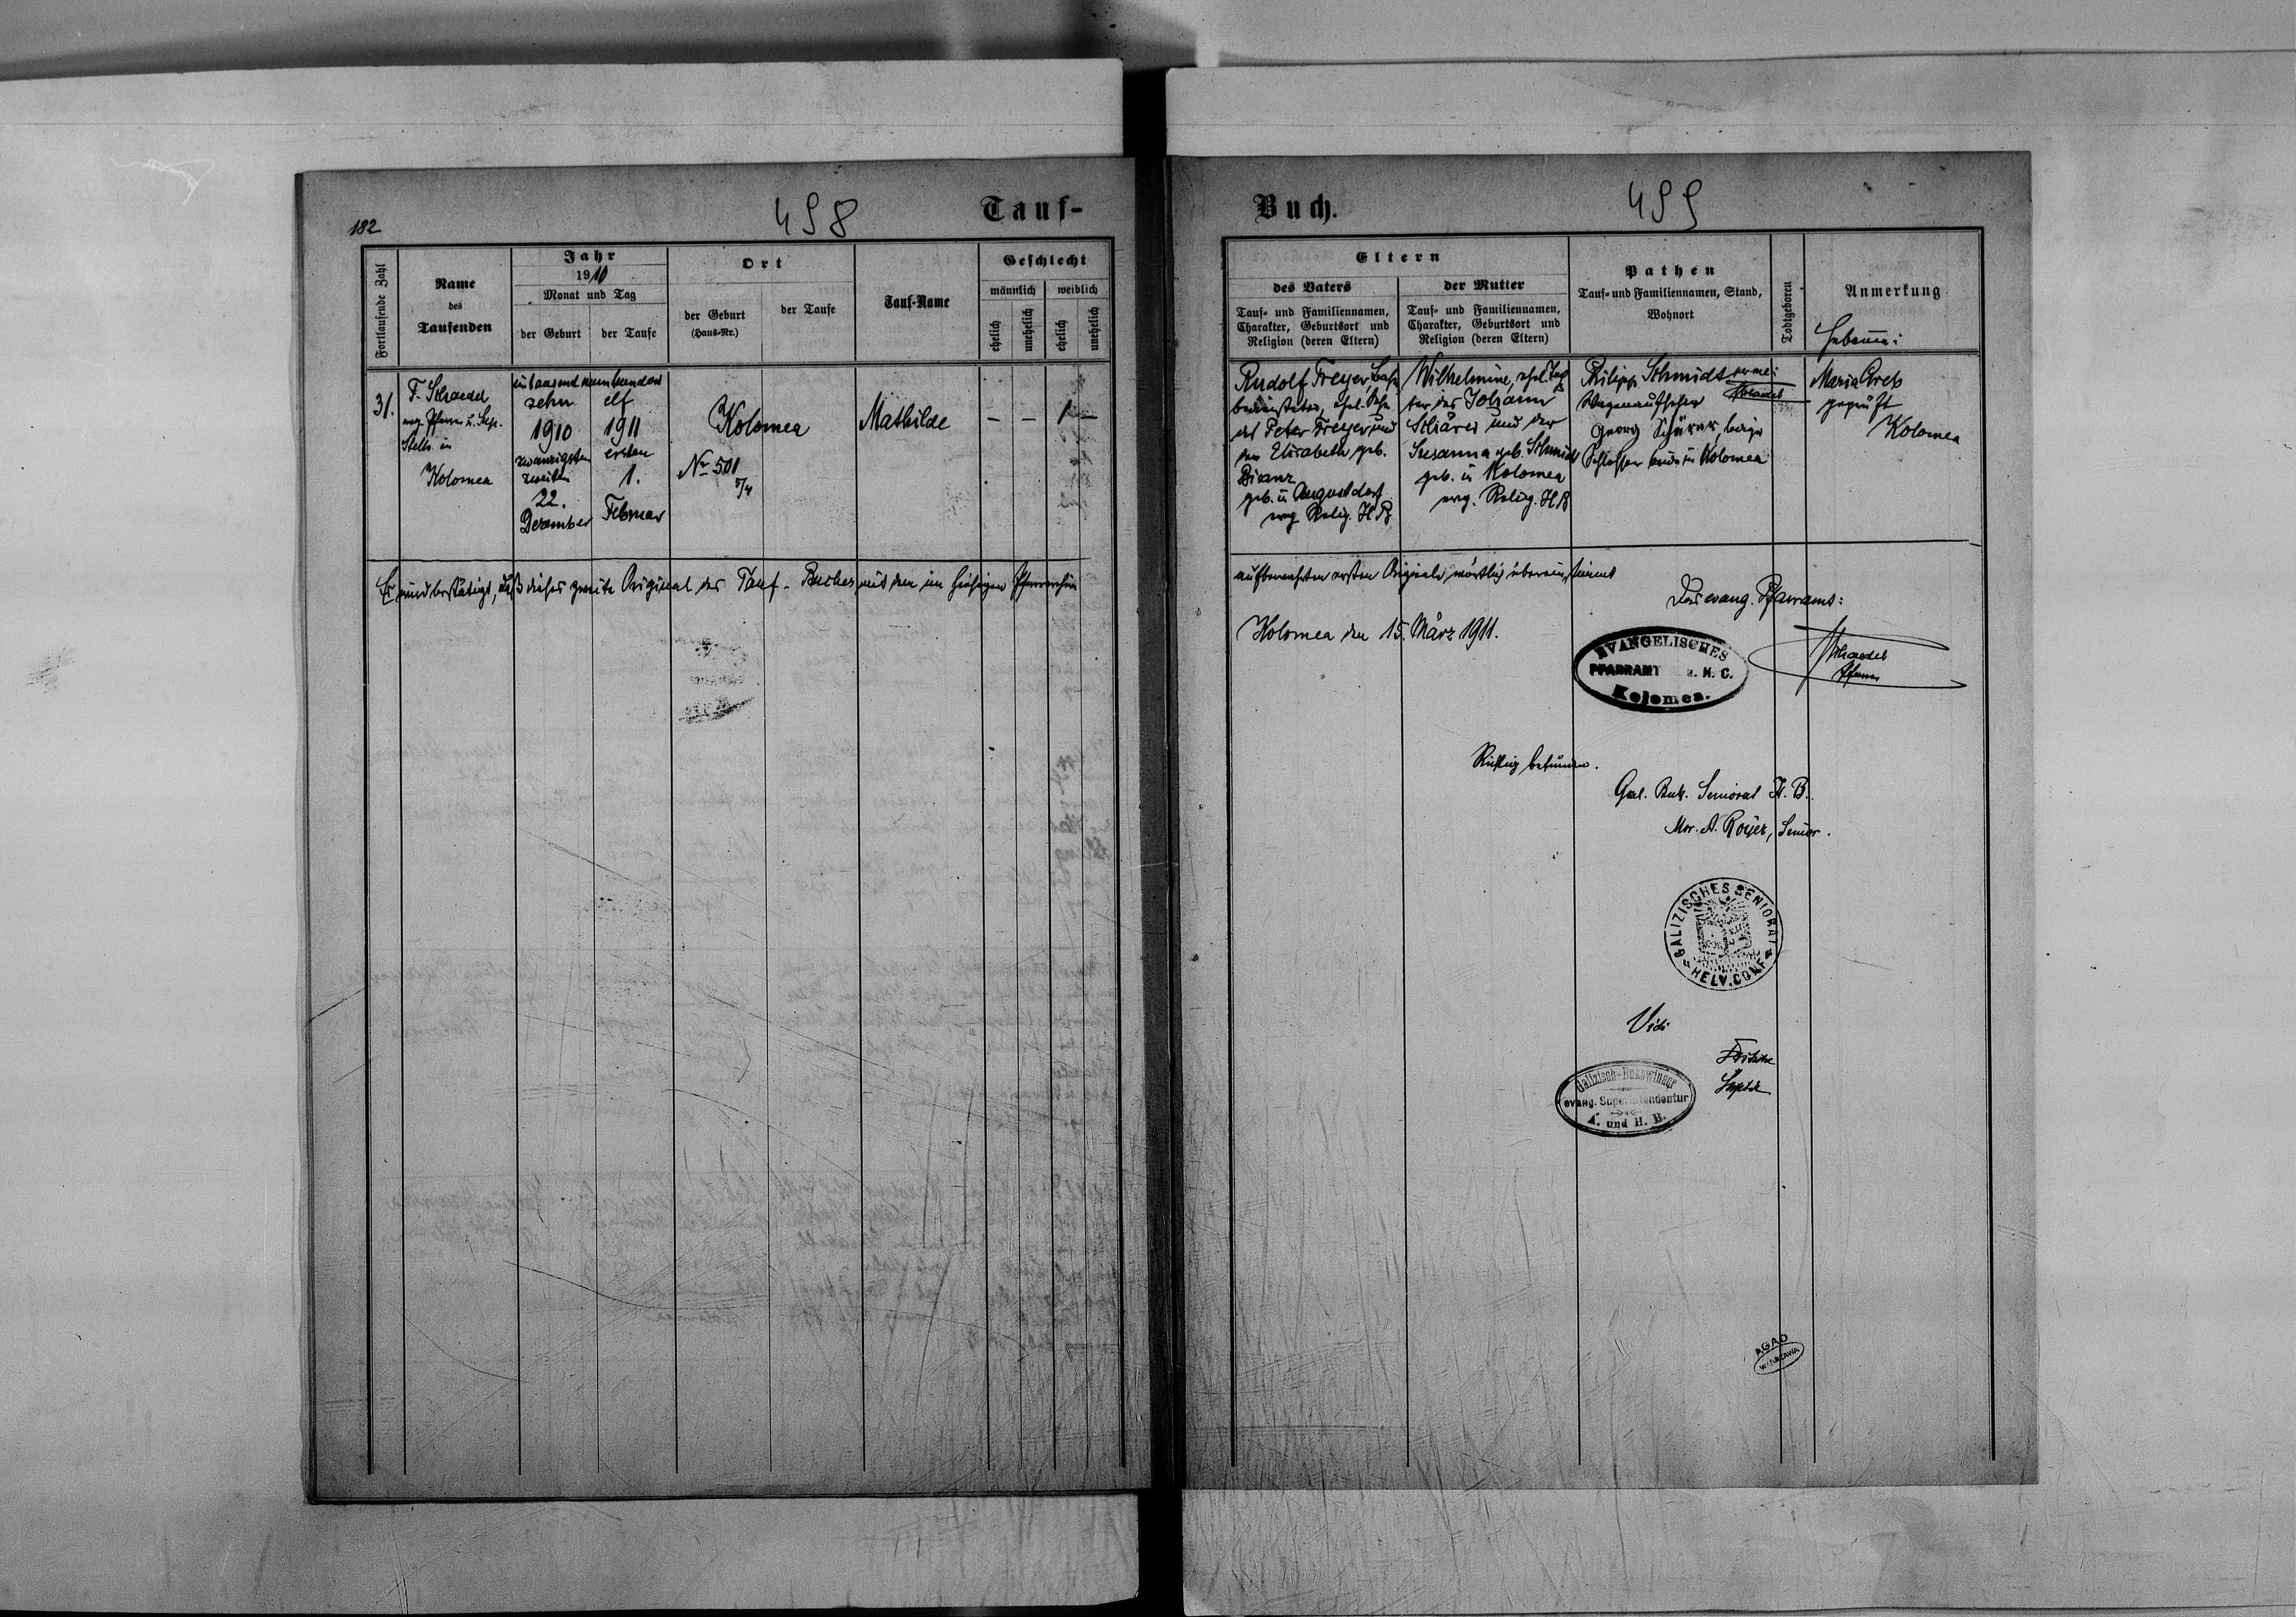 182
498
Tauf-
Fortlaufende Zahl
Name
des
Taufenden
Jahr
1910
Monat und Tag
der Geburt
der Taufe
Ort
der Geburt
(Haus-Nr.)
der Taufe
Tauf-Name
Geschlecht
männlich
weiblich
ehelich
unehelich
ehelich
unehelich
31.
F. Schraedel
evg. Pfarrer u. Sup.
Stellv. in
Kolomea
eintausend neunhundert
zehn
1910
zwanzigsten
zweiten
22.
Dezember
elf
1911
ersten
1.
Februar
Kolomea
No 501
5/4
Mathilde
– – 1 –
Es wird bestätigt, daß dieses zweite Original des Tauf-Buches mit dem im hiesigen Pfarrarchiv
Buch.
499
Eltern
des Vaters
Tauf- und Familiennamen,
Charakter, Geburtsort und
Religion (deren Eltern)
der Mutter
Tauf- und Familiennamen,
Charakter, Geburtsort und
Religion (deren Eltern)
Pathen
Tauf- und Familiennamen, Stand,
Wohnort
Todtgeboren
Anmerkung
Hebamme:
Rudolf Freyer, Bahn
bediensteter, ehel. Sohn
des Peter Freyer und
der Elisabeth geb.
geb. in Augustdorf
evg. Relig. H.B.
Wilhelmine, ehel. Toch
ter des Johann
Schärer und der
Susanna geb. Schmidt
geb. in Kolomea
evg. Relig. H.B
Philipp Schmidt
Wagenaufseher
Georg Schärer,
Schlosser beide in Kolomea
Maria
geprüft
Kolomea
aufbewahrten ersten Originale wörtlich übereinstimmt
Das evang. Pfarramt:
Kolomea den 15. März 1911.
EVANGELISCHES
PFARRAMT H. C.
Kolomea.
Schraedel
Pfarrer
Richtig befunden.
Gal. Buk. Seniorat H. B.
Mor. A. Royer, Senior.
GALIZISCHES SENIORAT
HELV. CONF.
Vidi
Fritsche
Suptdt
Galizisch-Bukowinaer
evang. Superintendentur
A. und H. B.
AGAD
WARSZAWA